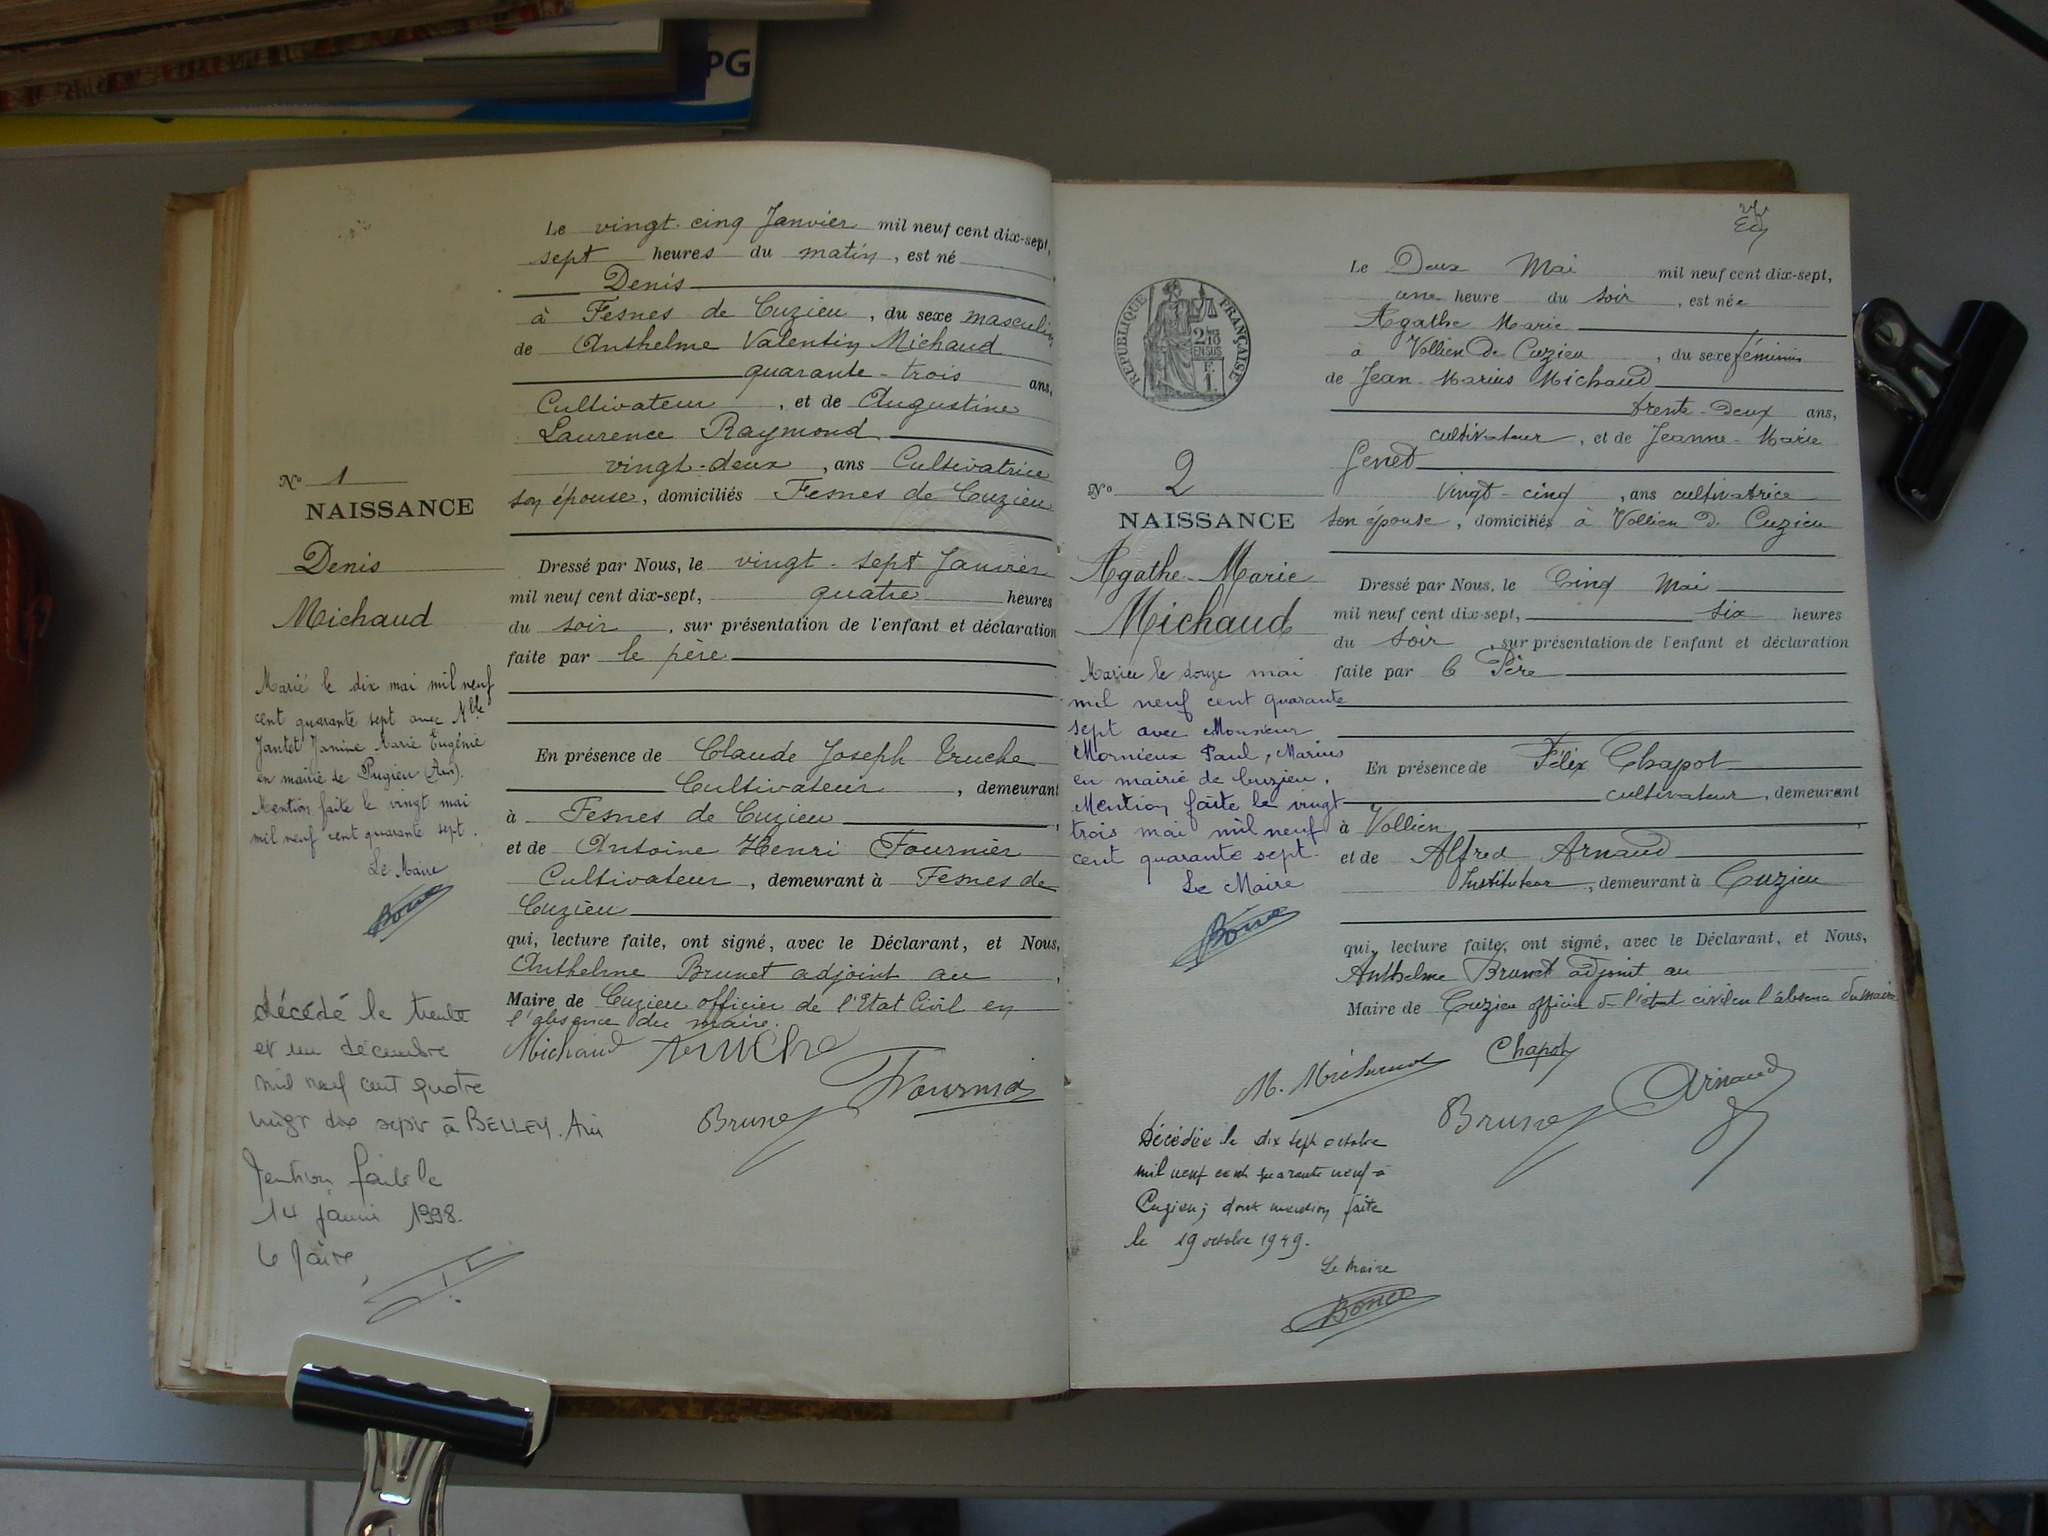 PG
Le vingt-cinq Janvier mil neuf cent dix-sept,
sept heures du matin, est né
Denis
à Fesnes de Cuzieu, du sexe masculin
de Anthelme Valentin Michaud
quarante-trois ans,
Cultivateur, et de Augustine
Laurence Raymond
vingt-deux, ans Cultivatrice
son épouse, domiciliés Fesnes de Cuzieu
Dressé par Nous, le vingt-sept Janvier
mil neuf cent dix-sept, quatre heures
du soir, sur présentation de l'enfant et déclaration
faite par le père
En présence de Claude Joseph Truche
Cultivateur, demeurant
à Fesnes de Cuzieu,
et de Antoine Henri Fournier
Cultivateur, demeurant à Fesnes de
Cuzieu
qui, lecture faite, ont signé, avec le Déclarant, et Nous,
Anthelme Brunet adjoint au,
Maire de Cuzieu officier de l'Etat Civil en
l'absence du maire.
Michaud Truche
Fournier
Brunet
No 1
NAISSANCE
Denis
Michaud
Marié le dix mai mil neuf
cent quarante sept avec Mlle
Jantet Janine Marie Eugénie
en mairie de Pugieu (Ain).
Mention faite le vingt mai
mil neuf cent quarante sept.
Le Maire
décédé le trente
et un décembre
mil neuf cent quatre
vingt dix sept à BELLEY. Ain
Mention faite le
14 janvier 1998.
Le Maire,
RÉPUBLIQUE FRANÇAISE
No 2
NAISSANCE
Agathe-Marie
Michaud
Mariée le douze mai
mil neuf cent quarante
sept avec Monsieur
Mornieux Paul, Marius
en mairie de Cuzieu.
Mention faite le vingt
trois mai mil neuf
cent quarante sept.
Le Maire
Le Deux Mai mil neuf cent dix-sept,
une heure du soir, est née
Agathe Marie
à Vollien de Cuzieu, du sexe féminin
de Jean-Marius Michaud
trente-deux ans,
cultivateur, et de Jeanne-Marie
Genet
vingt-cinq, ans cultivatrice
son épouse, domiciliés à Vollien de Cuzieu
Dressé par Nous, le Cinq Mai
mil neuf cent dix-sept, six heures
du soir, sur présentation de l'enfant et déclaration
faite par le Père
En présence de Félix Chapot
cultivateur, demeurant
à Vollien,
et de Alfred Arnaud
Instituteur, demeurant à Cuzieu
qui, lecture faite, ont signé, avec le Déclarant, et Nous,
Anthelme Brunet adjoint au
Maire de Cuzieu officier de l'état civil en l'absence du maire
M. Michaud Chapot
Brunet Arnaud
Décédée le dix sept octobre
mil neuf cent quarante neuf à
Cuzieu; dont mention faite
le 19 octobre 1949.
Le Maire